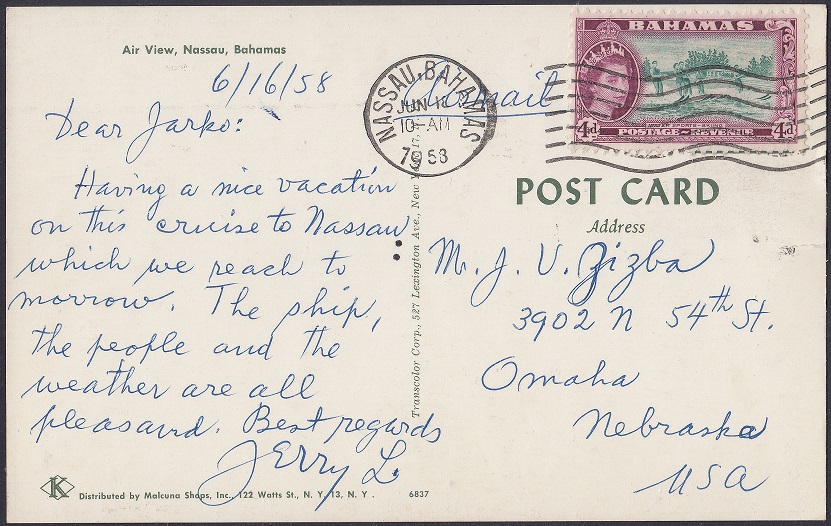 Air View, Nassau, Bahamas
6/16/58
Dear Jarko:
Having a nice vacation
on this cruise to Nassau
which we reach to
morrow. The ship,
the people and the
weather are all
pleasand. Best regards
Jerry L.
K
Distributed by Malcuna Shops, Inc., 122 Watts St., N. Y. 13, N. Y.
6837
Transcolor Corp., 527 Lexington Ave., New York 17,
NASSAU, BAHAMAS
JUN 1
10-AM
58
Airmail
BAHAMAS
4d
4d
POSTAGE & REVENUE
POST CARD
Address
M. J. V. Zizba
3902 N 54th St.
Omaha
Nebraska
USA